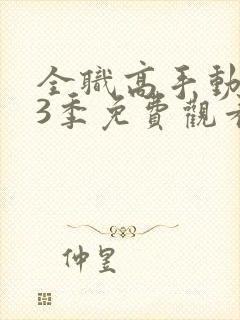 全職高手動
3季免費觀看
仲昱